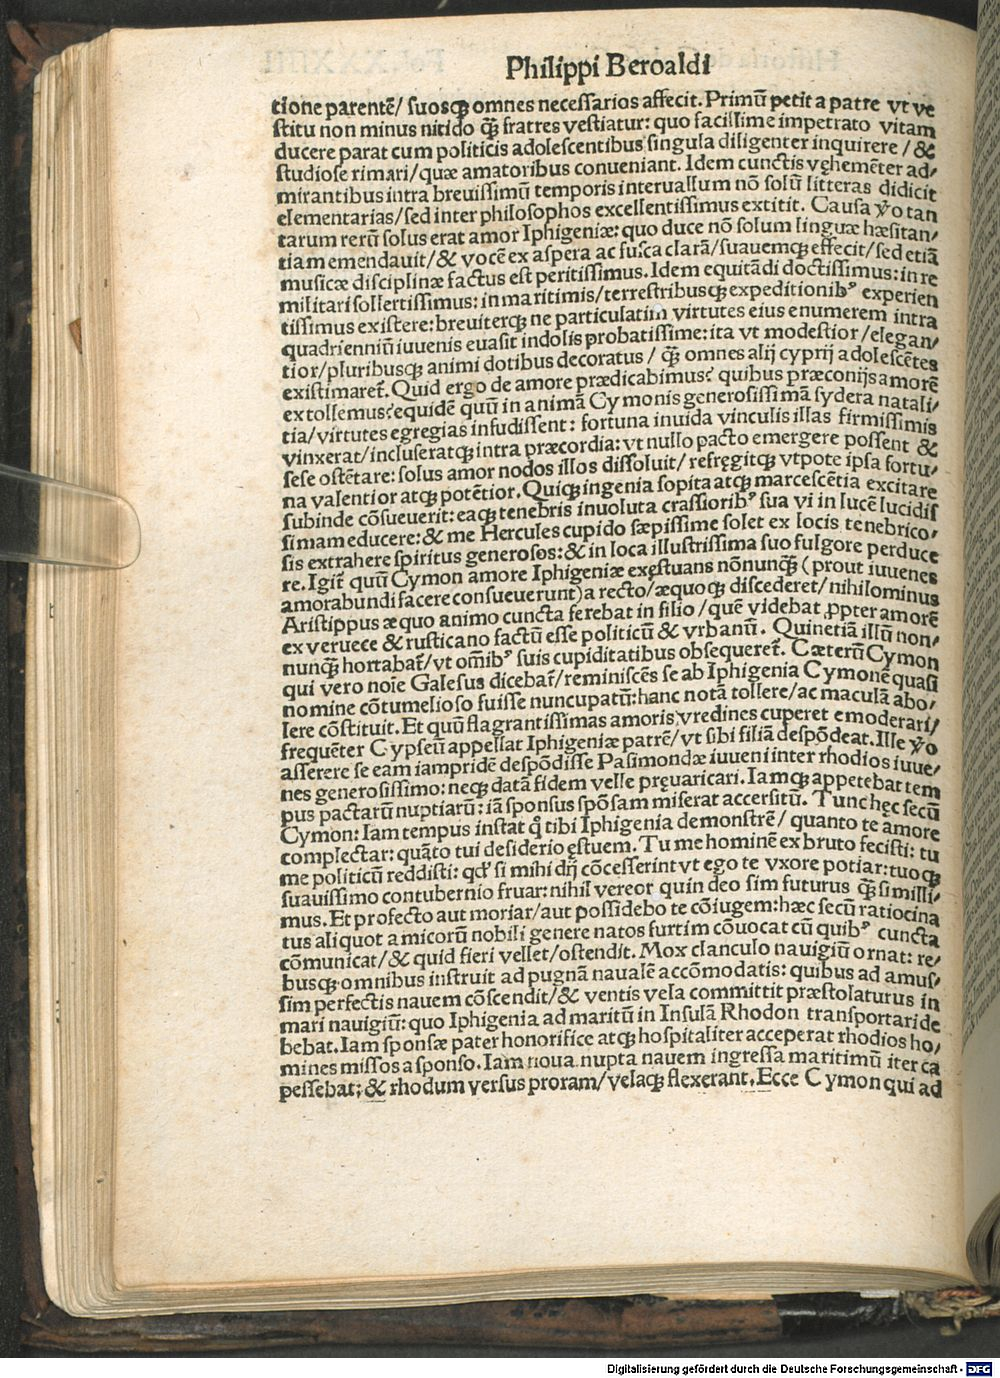 Philippi Beroaldi
tione parentē/ suosqꝫ omnes necessarios affecit. Primū petit a patre vt ve
stitu non minus nitido qꝫ̄ fratres vestiatur: quo facillime impetrato vitam
ducere parat cum politicis adolescentibus singula diligenter inquirere / &
studiose rimari/ quæ amatoribus conueniant. Idem cunctis vęhemēter ad/
mirantibus intra breuissimū temporis interuallum nō solū litteras didicit
elementarias/ sed inter philosophos excellentissimus extitit. Causa v̓o tan
tarum rerū solus erat amor Iphigeniæ: quo duce nō solum linguæ hæsitan/
tiam emendauit/ & vocē ex aspera ac fusca clarā/ suauemqꝫ effecit/ sed etiā
musicæ disciplinæ factus est peritissimus. Idem equitādi doctissimus: in re
militari sollertissimus: in maritimis/ terrestribusqꝫ expeditionibꝰ experien
tissimus existere: breuiterqꝫ ne particulatim virtutes eius enumerem intra
quadrienniū iuuenis euasit indolis probatissime: ita vt modestior/ elegan/
tior/ pluribusqꝫ animi dotibus decoratus / qꝫ̄ omnes alij cyprij adolescētes
existimaret̄. Quid ergo de amore prædicabimus? quibus præconijs amorē
extollemus? equidē quū in animā Cymonis generosissimā sydera natali/
tia/ virtutes egregias infudissent: fortuna inuida vinculis illas firmissimis
vinxerat/ incluseratqꝫ intra præcordia: vt nullo pacto emergere possent &
sese ostētare: solus amor nodos illos dissoluit/ refręgitqꝫ vtpote ipsa fortu/
na valentior atqꝫ potētior. Quiqꝫ ingenia sopita atqꝫ marcescētia excitare
subinde cōsueuerit: eaqꝫ tenebris inuoluta crassioribꝰ sua vi in lucē lucidis
simam educere: & me Hercules cupido sæpissime solet ex locis tenebrico/
sis extrahere spiritus generosos: & in loca illustrissima suo fulgore perduce
re. Igit̄ quū Cymon amore Iphigeniæ exęstuans nōnunqꝫ̄ ( prout iuuenes
amorabundi facere consueuerunt) a recto/ æquoqꝫ discederet/ nihilominus
Aristippus æquo animo cuncta ferebat in filio / quē videbat ꝓpter amorē
ex veruece & rusticano factū esse politicū & vrbanū. Quinetiā illū non/
nunqꝫ̄ hortabat̄/ vt om̄ibꝰ suis cupiditatibus obsequeret̄. Cæterū Cymon
qui vero noīe Galesus dicebat̄/ reminiscēs se ab Iphigenia Cymonē quasi
nomine cōtumelioso fuisse nuncupatū: hanc notā tollere/ ac maculā abo/
lere cōstituit. Et quū flagrantissimas amoris vredines cuperet emoderari/
frequēter Cypseū appellat Iphigeniæ patrē/ vt sibi filiā despōdeat. Ille v̓o
asserere se eam iampridē despōdisse Pasimondæ iuueni inter rhodios iuue/
nes generosissimo: neqꝫ datā fidem velle pręuaricari. Iamqꝫ appetebat tem
pus pactarū nuptiarū: iā sponsus spōsam miserat accersitū. Tunc hęc secū
Cymon: Iam tempus instat q̄ tibi Iphigenia demonstrē/ quanto te amore
complectar: quāto tui desiderio ęstuem. Tu me hominē ex bruto fecisti: tu
me politicū reddisti: qd̓ si mihi dij cōcesserint vt ego te vxore potiar: tuoqꝫ
suauissimo contubernio fruar: nihil vereor quin deo sim futurus qꝫ̄ simili/
mus. Et profecto aut moriar/ aut possidebo te cōiugem: hæc secū ratiocina
tus aliquot amicorū nobili genere natos furtim cōuocat cū quibꝰ cuncta
cōmunicat/ & quid fieri vellet/ ostendit. Mox clanculo nauigiū ornat: re/
busqꝫ omnibus instruit ad pugnā naualē accōmodatis: quibus ad amus/
sim perfectis nauem cōscendit/ & ventis vela committit præstolaturus in
mari nauigiū: quo Iphigenia ad maritū in Insulā Rhodon transportari de
bebat. Iam sponsæ pater honorifice atqꝫ hospitaliter acceperat rhodios ho/
mines missos a sponso. Iam noua nupta nauem ingressa maritimū iter ca
pessebat: & rhodum versus proram/ velaqꝫ flexerant. Ecce Cymon qui ad
Digitalisierung gefördert durch die Deutsche Forschungsgemeinschaft - DFG